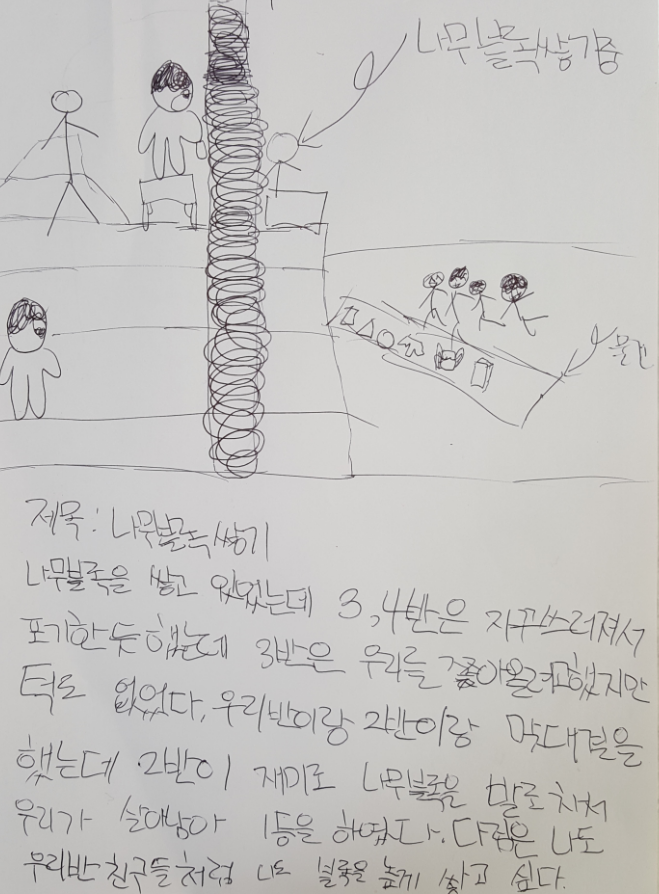 나무블록쌓기중
물건
제목: 나무블록쌓기
나무블록을 쌓고 있었는데 3,4반은 자꾸쓰러져서
포기한듯했는데 3반은 우리를 쫓아올려고했지만
턱도 없었다. 우리반이랑 2반이랑 맞대결을
했는데 2반이 재미로 나무블록을 발로 차서
우리가 살아남아 1등을 하였다. 다음은 나도
우리반 친구들처럼 나도 블록을 높게 쌓고 싶다.